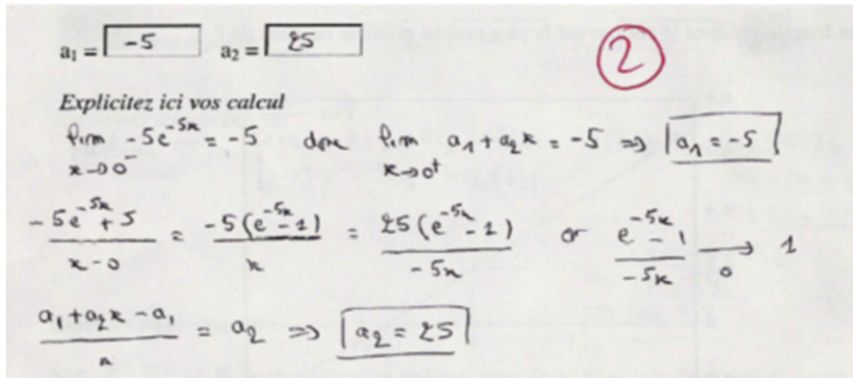 a₁ = -5 a₂ = 25
2
Explicitez ici vos calcul
lim x→0⁻ -5e^{-5x} = -5 donc lim x→0⁺ a₁ + a₂x = -5 ⇒ a₁ = -5
(-5e^{-5x} + 5)/(x - 0) = (-5(e^{-5x} - 1))/x = (25(e^{-5x} - 1))/(-5x) or (e^{-5x} - 1)/(-5x) →₀ 1
(a₁ + a₂x - a₁)/x = a₂ ⇒ a₂ = 25